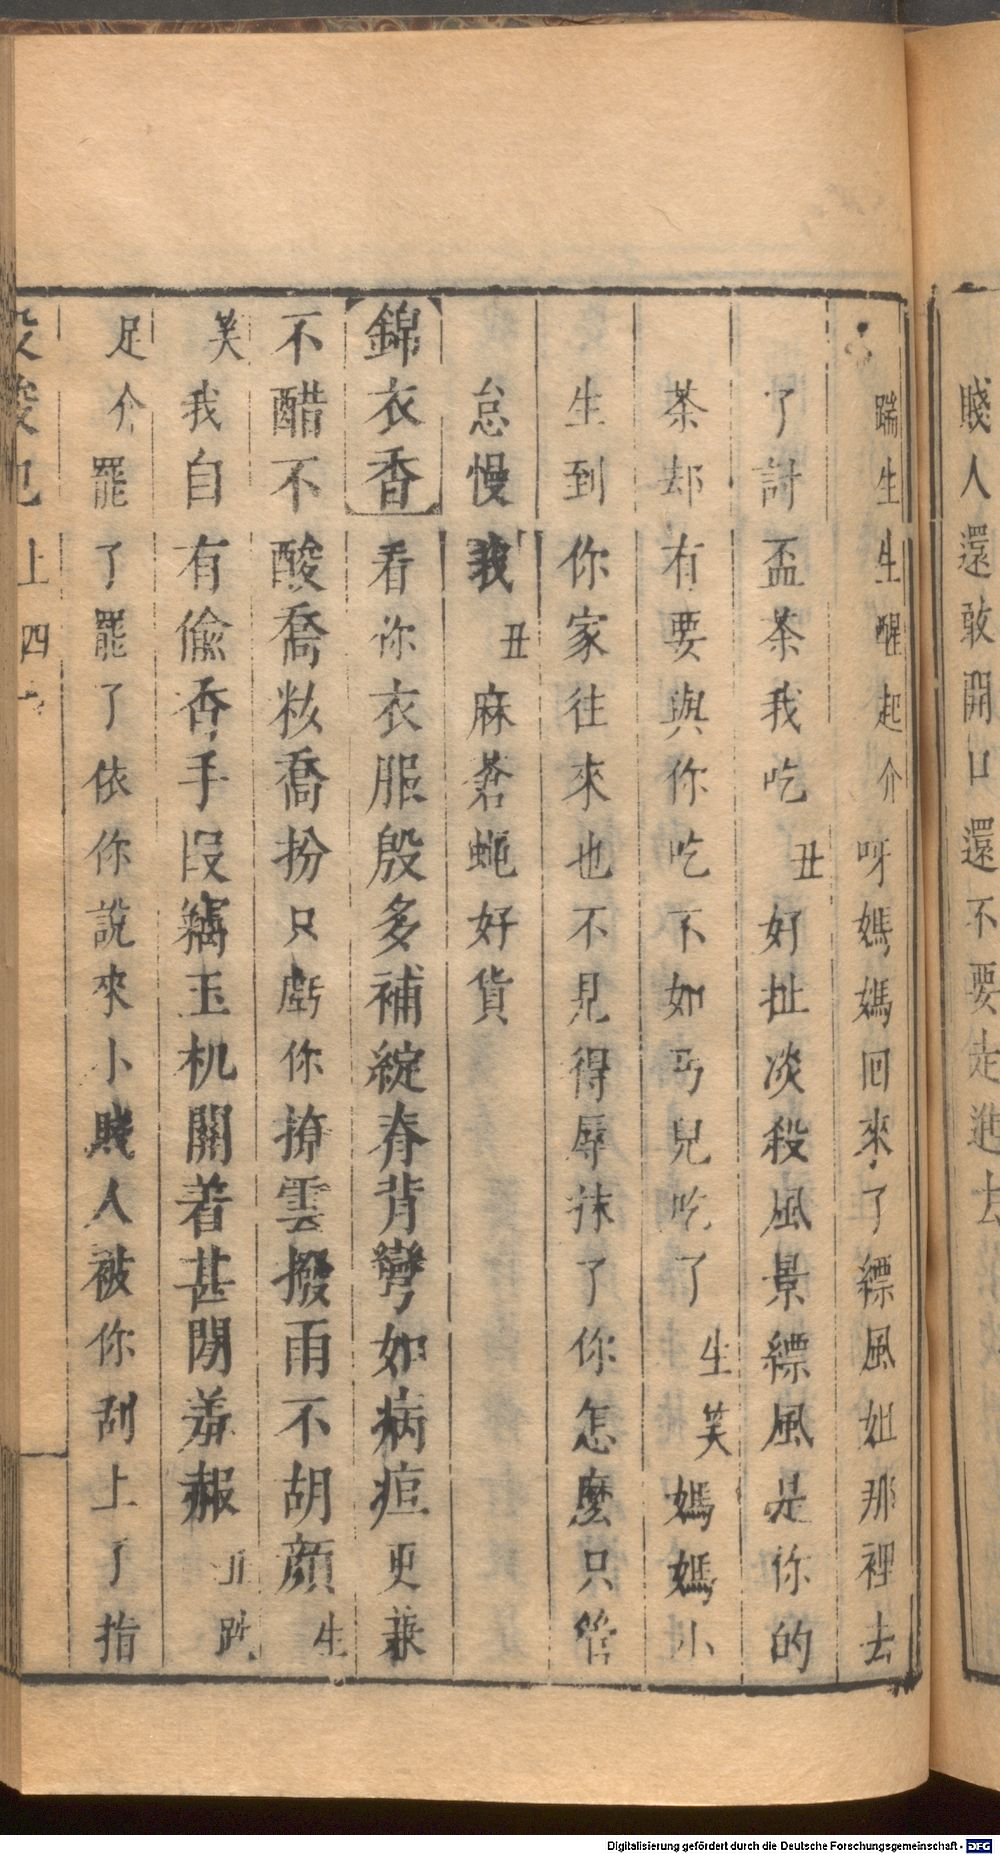 賤人還敢開口還不要走進去
踹生生醒起介呀媽媽回來了縹風姐那裡去
了討盃茶我吃丑好扯淡殺風景縹風是你的
茶却有要與你吃不如丐兒吃了生笑媽媽小
生到你家往來也不見得辱抹了你怎麼只管
怠慢我丑麻蒼蠅好貨
錦衣香看你衣服殷多補綻脊背彎如病疸更兼
不醋不酸喬籹喬扮只虧你撩雲撥雨不胡顏生
笑我自有偸香手叚竊玉机關着甚閑羞赧丑跌
足介罷了罷了依你說來小賤人被你刮上了指
上 四
Digitalisierung gefördert durch die Deutsche Forschungsgemeinschaft - DFG